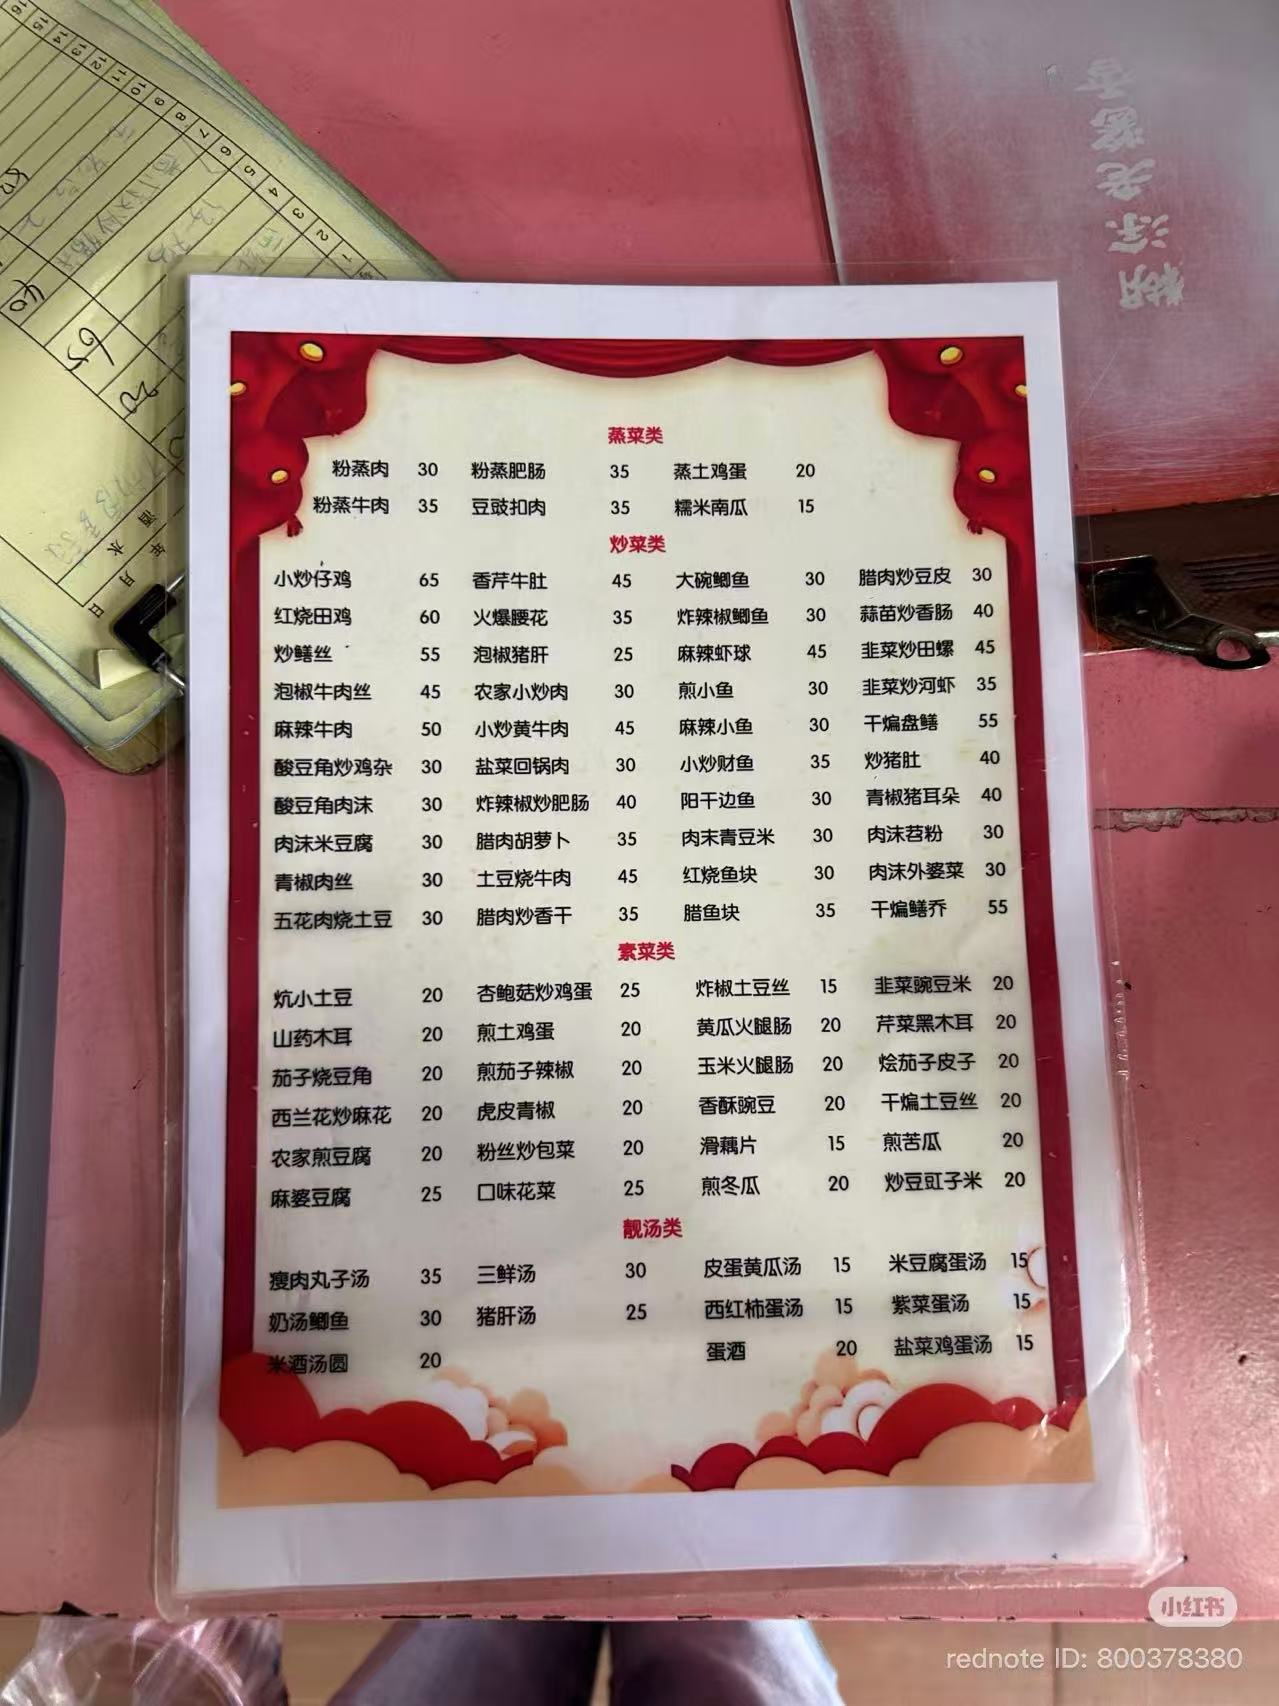 16
15
14
13
12
11
10
9
8
7
6
5
4
3
2
1
40
65
20
酒水
年 月 日
蒸菜类
粉蒸肉 30 粉蒸肥肠 35 蒸土鸡蛋 20
粉蒸牛肉 35 豆豉扣肉 35 糯米南瓜 15
炒菜类
小炒仔鸡 65 香芹牛肚 45 大碗鲫鱼 30 腊肉炒豆皮 30
红烧田鸡 60 火爆腰花 35 炸辣椒鲫鱼 30 蒜苗炒香肠 40
炒鳝丝 55 泡椒猪肝 25 麻辣虾球 45 韭菜炒田螺 45
泡椒牛肉丝 45 农家小炒肉 30 煎小鱼 30 韭菜炒河虾 35
麻辣牛肉 50 小炒黄牛肉 45 麻辣小鱼 30 干煸盘鳝 55
酸豆角炒鸡杂 30 盐菜回锅肉 30 小炒财鱼 35 炒猪肚 40
酸豆角肉沫 30 炸辣椒炒肥肠 40 阳干边鱼 30 青椒猪耳朵 40
肉沫米豆腐 30 腊肉胡萝卜 35 肉末青豆米 30 肉沫苕粉 30
青椒肉丝 30 土豆烧牛肉 45 红烧鱼块 30 肉沫外婆菜 30
五花肉烧土豆 30 腊肉炒香干 35 腊鱼块 35 干煸鳝乔 55
素菜类
炕小土豆 20 杏鲍菇炒鸡蛋 25 炸椒土豆丝 15 韭菜豌豆米 20
山药木耳 20 煎土鸡蛋 20 黄瓜火腿肠 20 芹菜黑木耳 20
茄子烧豆角 20 煎茄子辣椒 20 玉米火腿肠 20 烩茄子皮子 20
西兰花炒麻花 20 虎皮青椒 20 香酥豌豆 20 干煸土豆丝 20
农家煎豆腐 20 粉丝炒包菜 20 滑藕片 15 煎苦瓜 20
麻婆豆腐 25 口味花菜 25 煎冬瓜 20 炒豆豇子米 20
靓汤类
瘦肉丸子汤 35 三鲜汤 30 皮蛋黄瓜汤 15 米豆腐蛋汤 15
奶汤鲫鱼 30 猪肝汤 25 西红柿蛋汤 15 紫菜蛋汤 15
米酒汤圆 20 蛋酒 20 盐菜鸡蛋汤 15
小红书
rednote ID: 800378380